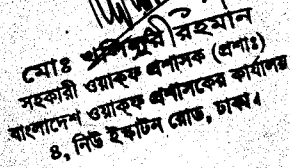 মোঃ খলিলুর রহমান
সহকারী ওয়াক্‌ফ প্রশাসক (প্রশাঃ)
বাংলাদেশ ওয়াক্‌ফ প্রশাসকের কার্যালয়
৪, নিউ ইস্কাটন রোড, ঢাকা।